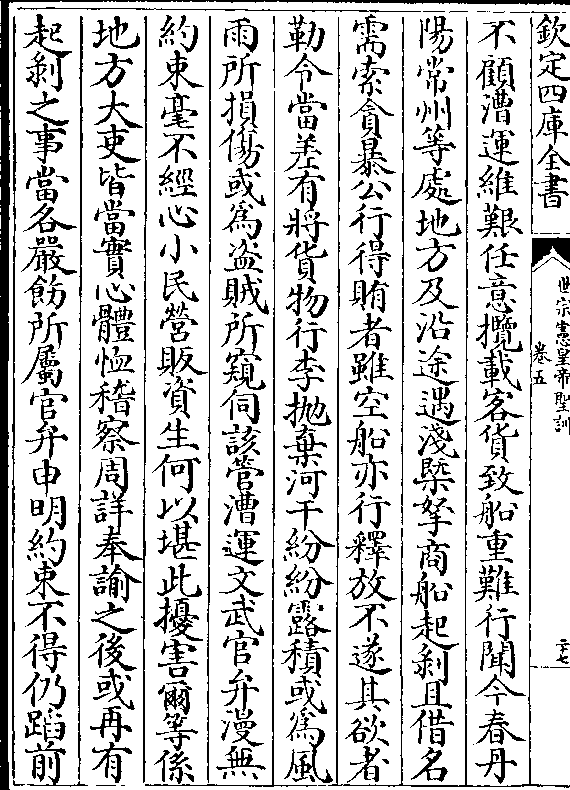 欽定四庫全書
世宗憲皇帝聖訓
卷五
二十七
不顧漕運維艱任意攬載客貨致船重難行聞今春丹
陽常州等處地方及沿途遇淺槩拏商船起剝且借名
需索貪暴公行得賄者雖空船亦行釋放不遂其欲者
勒令當差有將貨物行李拋棄河干紛紛露積或為風
雨所損傷或為盜賊所窺伺該管漕運文武官弁漫無
約束毫不經心小民營販資生何以堪此擾害爾等係
地方大吏皆當實心體恤稽察周詳奉諭之後或再有
起剝之事當各嚴飭所屬官弁申明約束不得仍蹈前